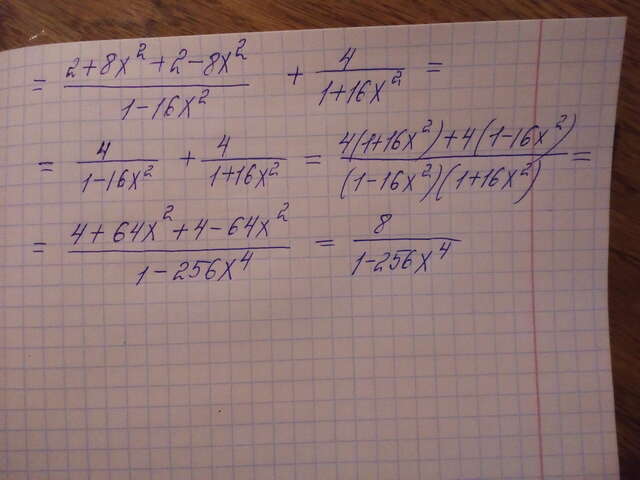 = (2+8x²+2-8x²)/(1-16x²) + 4/(1+16x²) =
= 4/(1-16x²) + 4/(1+16x²) = (4(1+16x²)+4(1-16x²))/((1-16x²)(1+16x²)) =
= (4+64x²+4-64x²)/(1-256x⁴) = 8/(1-256x⁴)